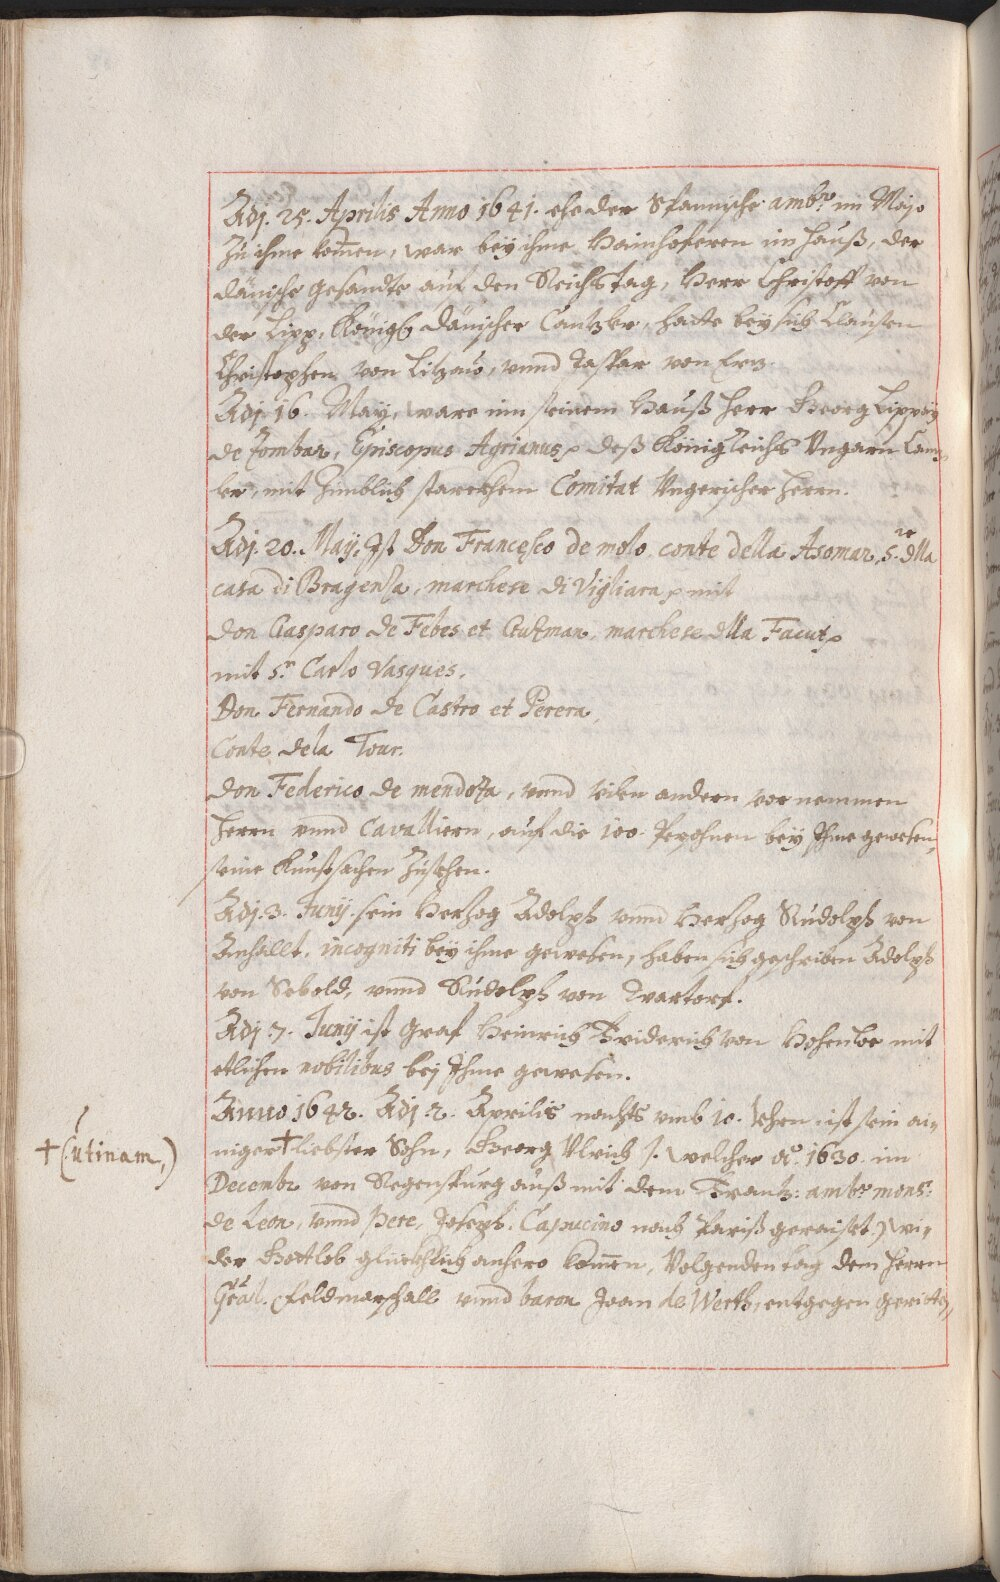 Adj. 25. Aprilis Anno 1641. ehe der Spannische amb:r im Majo
Zu ihme kom̄en, war bey ihme Hainhoferen im Hauß, der
dänische gesandte auf den Reichstag, Herr Christoff von
der Lipp, Königl: dänischer Cantzler, hatte bey sich Clausen
Christophen von Litzau, vnnd Caspar von
Adj. 16. May, ware inn seinem Hauß Herr Georg Lippay
de Zombar, Episcopus Agrianus, deß Königreichs Vngarn Cantz-
ler, mit zimblich starckhem Comitat Vngerischer Herrn.
Adj. 20. May, Ist Don Francesco de molo conte della Asomar, S.re dlla
casa di Braganza, marchese di Vigliara, mit
don Gasparo de Febes et Gutzman, marchese dlla Facut,
mit S.r Carlo Vasques.
Don Fernando de Castro et Perera,
Conte dela Tour.
don Federico de mendoza, vnnd vilen andern vornemmen
Herrn vnnd Cavalliern, auf die 100. Persohnen bey Ihme gewesen,
seine Kunstsachen Zusehen.
Adj. 3. Junij sein Herzog Adolph vnnd Herzog Rudolph von
Anhallt, incogniti bey ihme gewesen, haben sich geschriben Adolph
von Sebold, vnnd Rudolph von Wartorf.
Adj. 7. Junij ist Graf Heinrich Friderich von Hohenloe mit
etlichen nobilibus bey Ihme gewesen.
Anno 1642. Adj. 2. Aprilis nachts vmb 10. Vhrn ist sein ai-
niger † liebster Sohn, Georg Vlrich /: welcher ao. 1630. im
† (: utinam,)
Decembr von Regenspurg auß mit dem Frantz: ambr monsr:
de Leon, vnnd Pere, Joseph. Capucino nach Pariß geraiset.) wi-
der Gottlob glückhlich anhero kom̄en, Volgenden tag dem Herrn
Gral. Feldmarschall vnnd baron Joan de Werth, entgegen geritten,